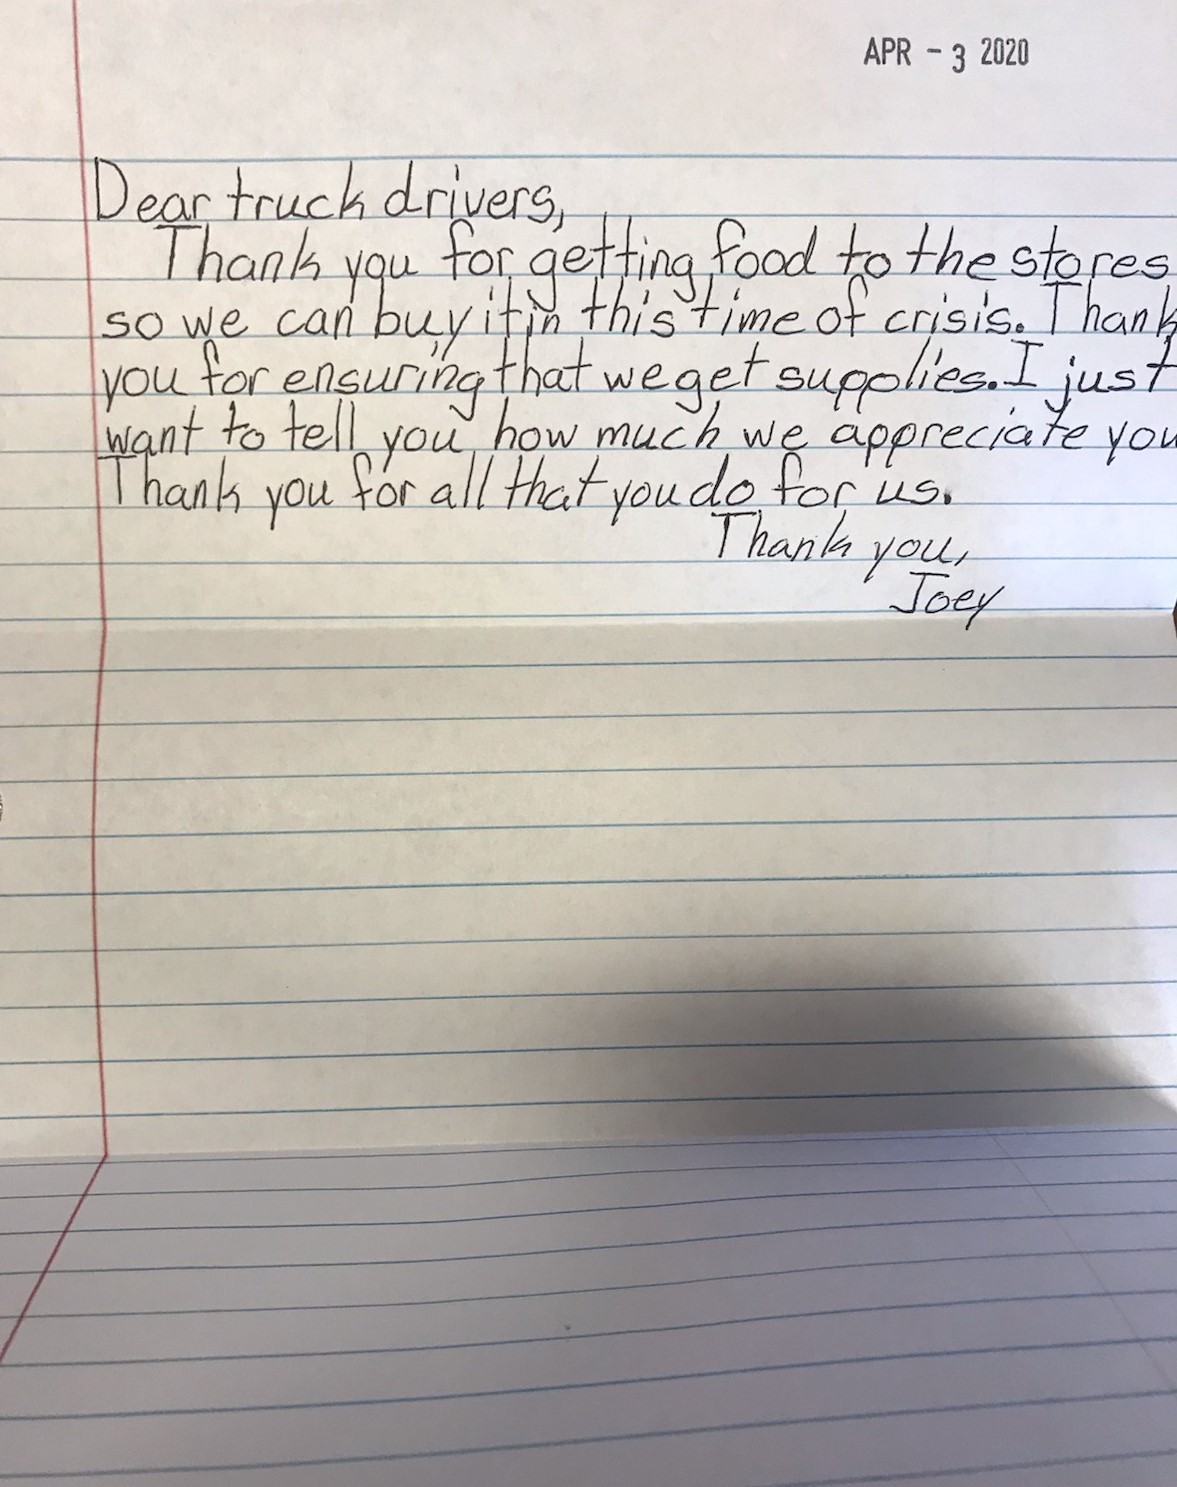 APR - 3 2020
Dear truck drivers,
Thank you for getting food to the stores
so we can buy it in this time of crisis. Thank
you for ensuring that we get supplies. I just
want to tell you how much we appreciate you
Thank you for all that you do for us.
Thank you,
Joey